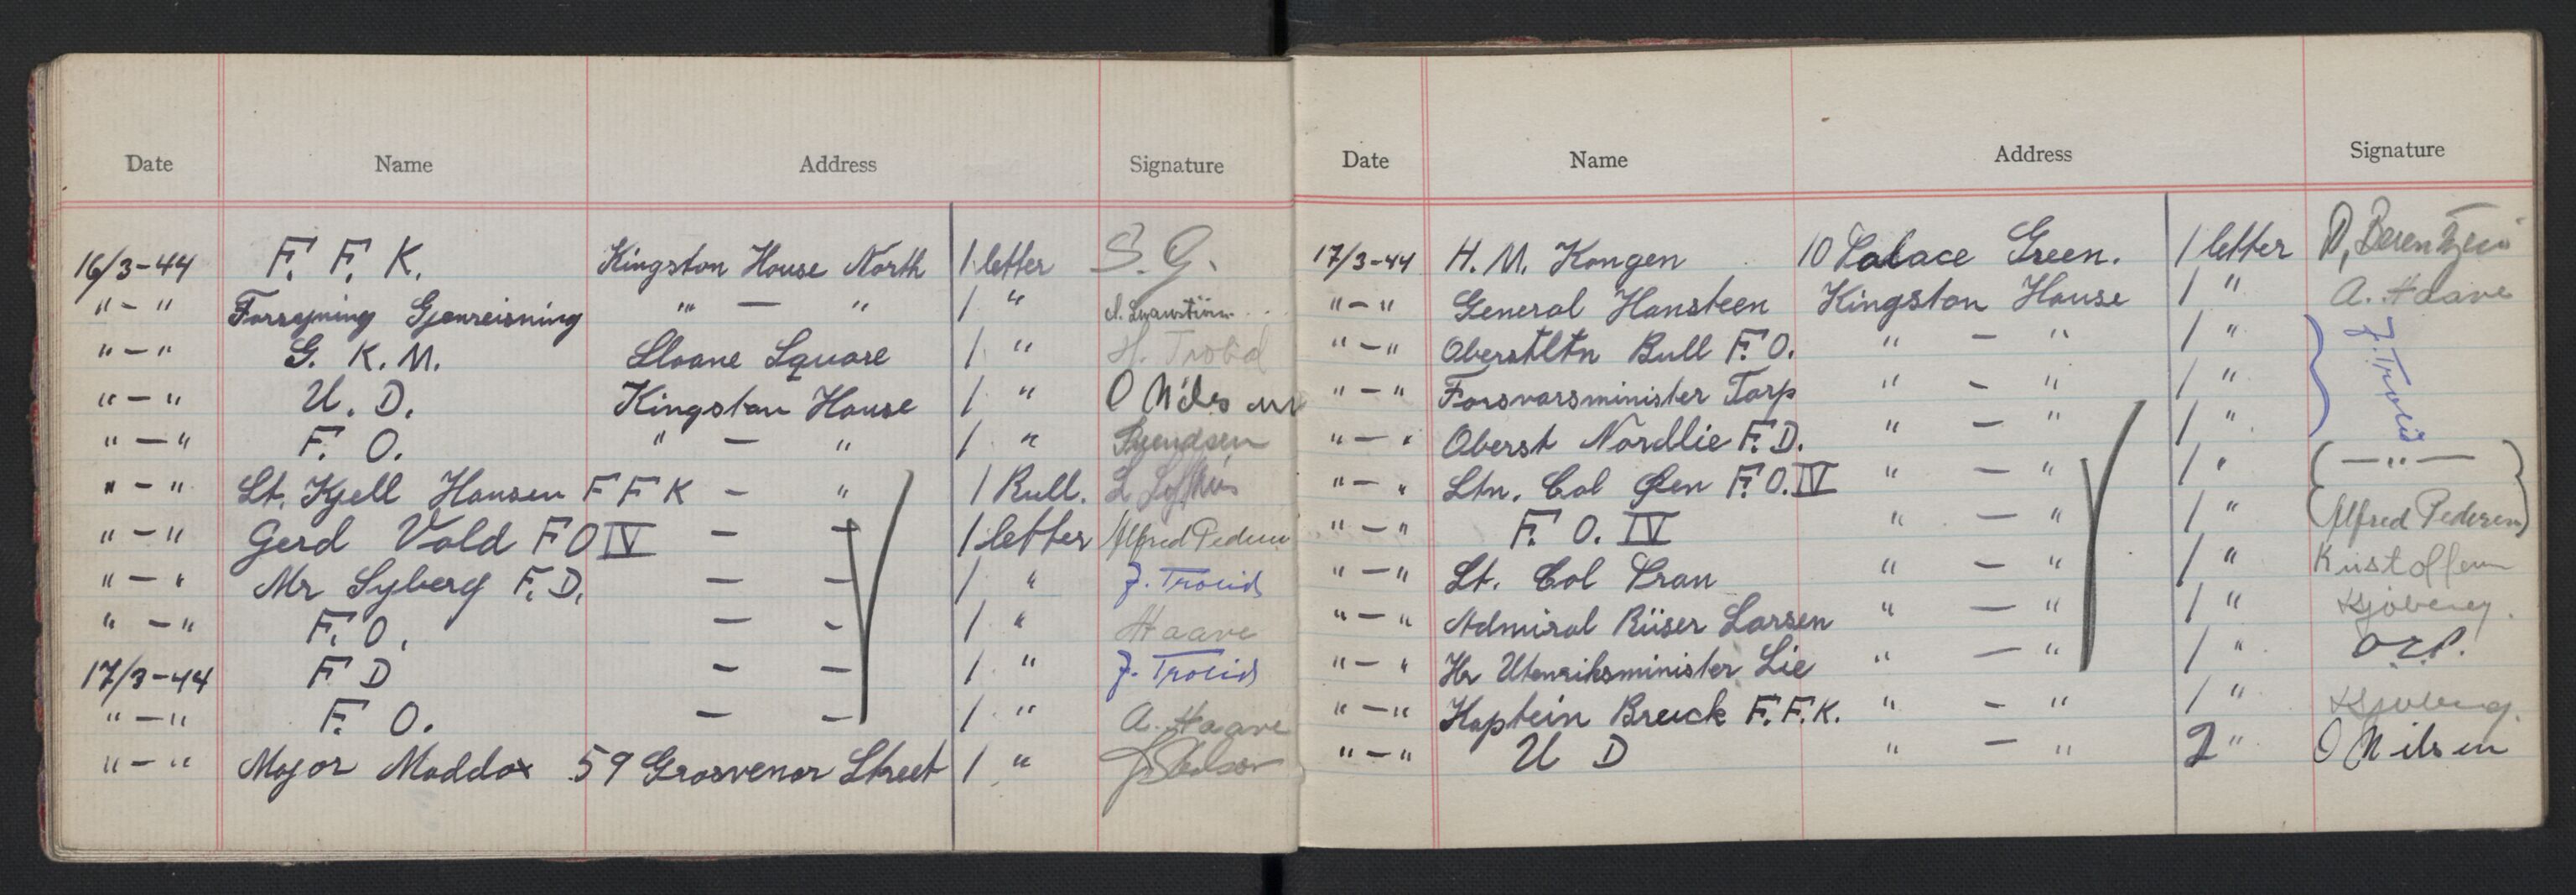 Date Name Address Signature
16/3-44 F. F. K. Kingston House North 1 letter S. G.
"-" Forsyning Gjenreisning " — " 1 "
"-" G. K. M. Sloane Square 1 "
"-" U. D. Kingston House 1 " O Nilsen
"-" F. O. " — " 1 " Svendsen
"-" Lt. Kjell Hansen F F K - " 1 Rull.
"-" Gerd Vold F O IV — — 1 letter Alfred Pedersen
"-" Mr Syberg F. D. — — 1 " J. Trolid
"-" F. O. — — 1 " Haave
17/3-44 F D — — 1 " J. Trolid
"-" F. O. — — 1 " A. Haave
"-" Major Maddox 59 Grosvenor Street 1 "
Date Name Address Signature
17/3-44 H. M. Kongen 10 Palace Green. 1 letter D, Berentzen
"-" General Hansteen Kingston House 1 " A. Haave
"-" Oberstltn Bull F. O. " — " 1 " J. Trolid
"-" Forsvarsminister Torp " — " 1 "
"-" Oberst Nordlie F. D. " — " 1 "
"-" Ltn. Col Øen F. O. IV " — " 1 " (—"—)
"-" F. O. IV " — " 1 " (Alfred Pedersen)
"-" Lt. Col Pran " — " 1 " Kristoffersen
"-" Admiral Riiser Larsen " — " 1 " Kjøberg.
"-" Hr Utenriksminister Lie " — " 1 "
"-" Kaptein Breick F. F. K. " — " 1 " Kjøberg.
"-" U D " — " 2 " O Nilsen